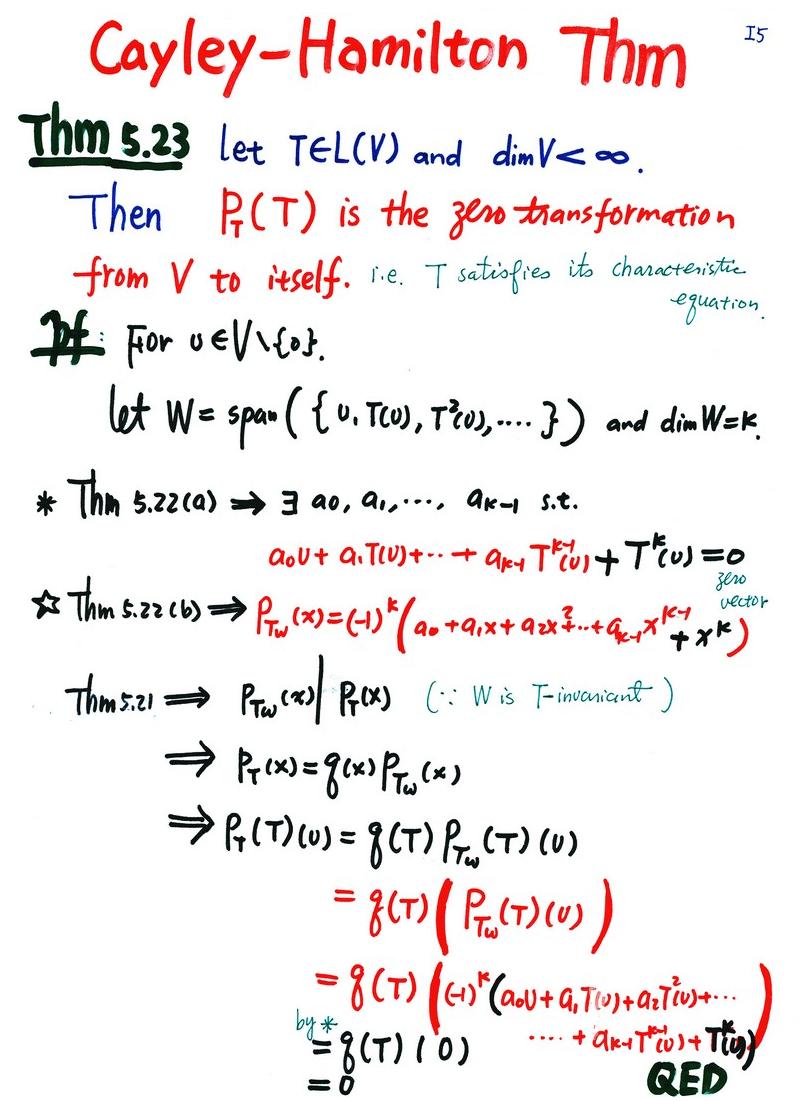 I5
Cayley-Hamilton Thm
Thm 5.23 let T∈L(V) and dimV<∞.
Then P_T(T) is the zero transformation
from V to itself. i.e. T satisfies its characteristic
equation.
Pf: For υ∈V\{0}.
let W = span({υ, T(υ), T²(υ), ....}) and dimW=k.
* Thm 5.22(a) ⇒ ∃ a₀, a₁, ..., a_{k-1} s.t.
a₀υ + a₁T(υ)+···+ a_{k-1}T^{k-1}(υ) + T^k(υ) = 0
zero
vector
☆ Thm 5.22(b) ⇒ P_{T_W}(x) = (-1)^k(a₀ + a₁x + a₂x²+···+a_{k-1}x^{k-1}
+ x^k)
Thm 5.21 ⇒ P_{T_W}(x) | P_T(x) (∵ W is T-invariant)
⇒ P_T(x) = q(x) P_{T_W}(x)
⇒ P_T(T)(υ) = q(T) P_{T_W}(T)(υ)
= q(T)(P_{T_W}(T)(υ))
= q(T)((-1)^k(a₀υ + a₁T(υ) + a₂T²(υ)+···
···· + a_{k-1}T^{k-1}(υ) + T^k(υ))
by *
= q(T)(0)
= 0
QED